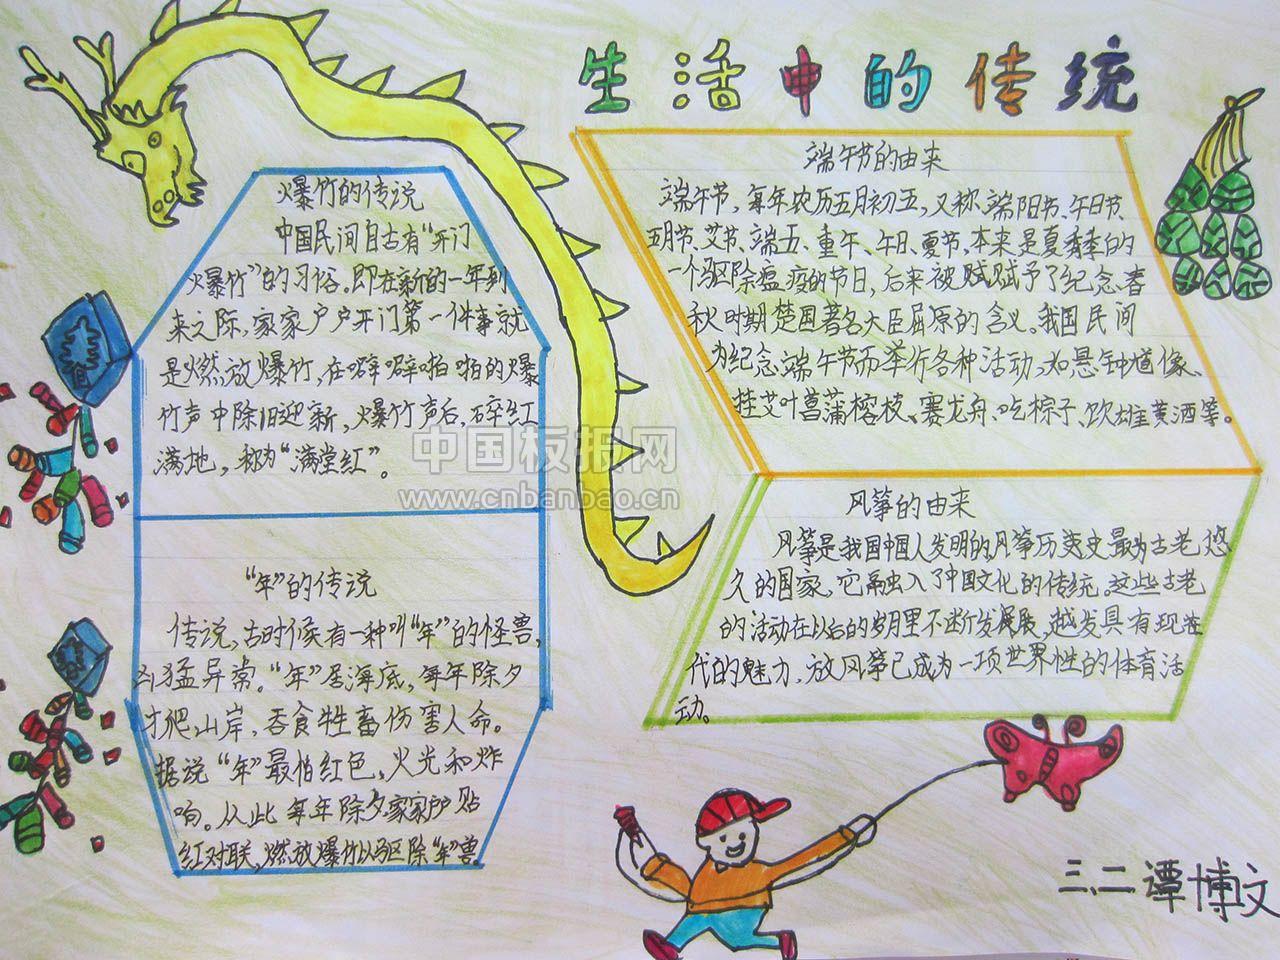 生活中的传统
爆竹的传说
中国民间自古有“开门
爆竹”的习俗。即在新的一年到
来之际,家家户户开门第一件事就
是燃放爆竹,在噼噼啪啪的爆
竹声中除旧迎新,爆竹声后,碎红
满地,称为“满堂红”。
“年”的传说
传说,古时候有一种叫“年”的怪兽,
凶猛异常。“年”居海底,每年除夕
才爬山岸,吞食牲畜伤害人命。
据说“年”最怕红色,火光和炸
响。从此每年除夕家家户贴
红对联,燃放爆竹以驱除“年”兽
端午节的由来
端午节,每年农历五月初五,又称端阳节、午日节
五月节、艾节、端五、重午、午日、夏节,本来是夏季的
一个驱除瘟疫的节日,后来被赋赋予了纪念春
秋时期楚国著名大臣屈原的含义。我国民间
为纪念端午节而举行各种活动,如悬钟馗像、
挂艾叶菖蒲榕枝、赛龙舟、吃棕子、饮雄黄酒等。
风筝的由来
风筝是我国中国人发明的,风筝历史最为古老悠
久的国家,它融入了中国文化的传统,这些古老
的活动在以后的岁月里不断发展,越发具有现
代的魅力,放风筝已成为一项世界性的体育活
动。
三、二 谭博文
中国板报网
www.cnbanbao.cn